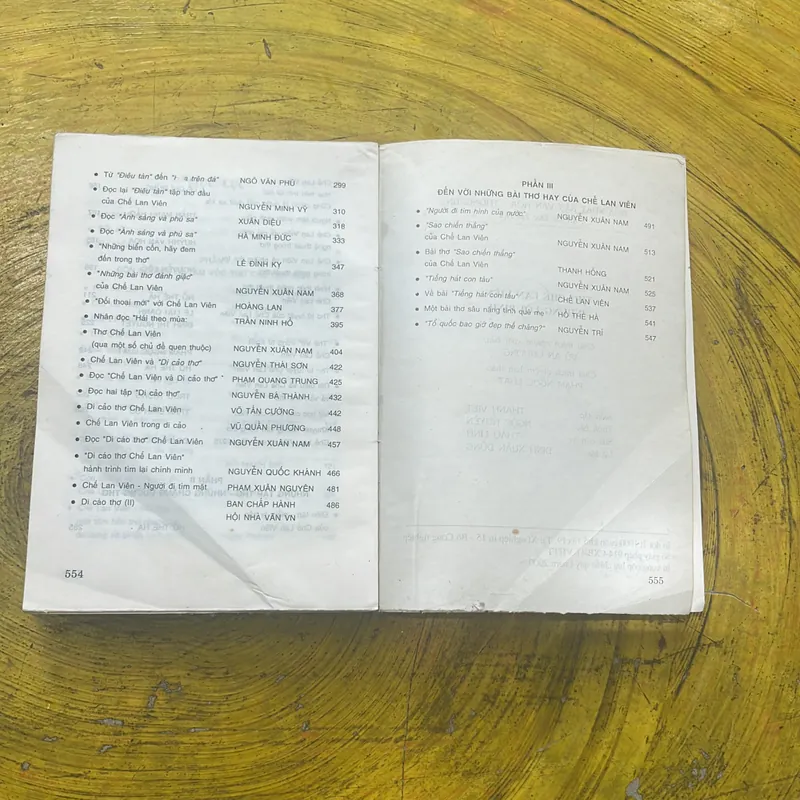 • Từ "Điêu tàn" đến " a trên đá" NGÔ VĂN PHÚ 299
• Đọc lại "Điêu tàn" tập thơ đầu
của Chế Lan Viên NGUYỄN MINH VỸ 310
• Đọc "Ánh sáng và phù sa" XUÂN DIỆU 318
• Đọc "Ánh sáng và phù sa" HÀ MINH ĐỨC 333
• "Những biển cồn, hãy đem
đến trong thơ" LÊ ĐÌNH KỴ 347
• "Những bài thơ đánh giặc"
của Chế Lan Viên NGUYỄN XUÂN NAM 368
• "Đối thoại mới" với Chế Lan Viên HOÀNG LAN 377
• Nhân đọc "Hái theo mùa: TRẦN NINH HỒ 395
• Thơ Chế Lan Viên
(qua một số chủ đề quen thuộc) NGUYỄN XUÂN NAM 404
• Chế Lan Viên và "Di cảo thơ" NGUYỄN THÁI SƠN 422
• Đọc "Chế Lan Viên và Di cảo thơ" PHẠM QUANG TRUNG 425
• Đọc hai tập "Di cảo thơ" NGUYỄN BÁ THÀNH 432
• Di cảo thơ Chế Lan Viên VÕ TẤN CƯỜNG 442
• Chế Lan Viên trong di cảo VŨ QUẦN PHƯƠNG 448
• Đọc "Di cảo thơ" Chế Lan Viên NGUYỄN XUÂN NAM 457
• "Di cảo thơ Chế Lan Viên"
hành trình tìm lại chính mình NGUYỄN QUỐC KHÁNH 466
• Chế Lan Viên - Người đi tìm mặt PHẠM XUÂN NGUYÊN 481
• Di cảo thơ (II) BAN CHẤP HÀNH 486
HỘI NHÀ VĂN VN
554
PHẦN III
ĐẾN VỚI NHỮNG BÀI THƠ HAY CỦA CHẾ LAN VIÊN
• "Người đi tìm hình của nước" NGUYỄN XUÂN NAM 491
• "Sao chiến thắng"
của Chế Lan Viên NGUYỄN XUÂN NAM 513
• Bài thơ "Sao chiến thắng"
của Chế Lan Viên THANH HỒNG 521
• "Tiếng hát con tàu" NGUYỄN XUÂN NAM 525
• Về bài "Tiếng hát con tàu" CHẾ LAN VIÊN 537
• Một bài thơ sâu nặng tình quê mẹ HỒ THẾ HÀ 541
• "Tổ quốc bao giờ đẹp thế chăng?" NGUYỄN TRÍ 547
555